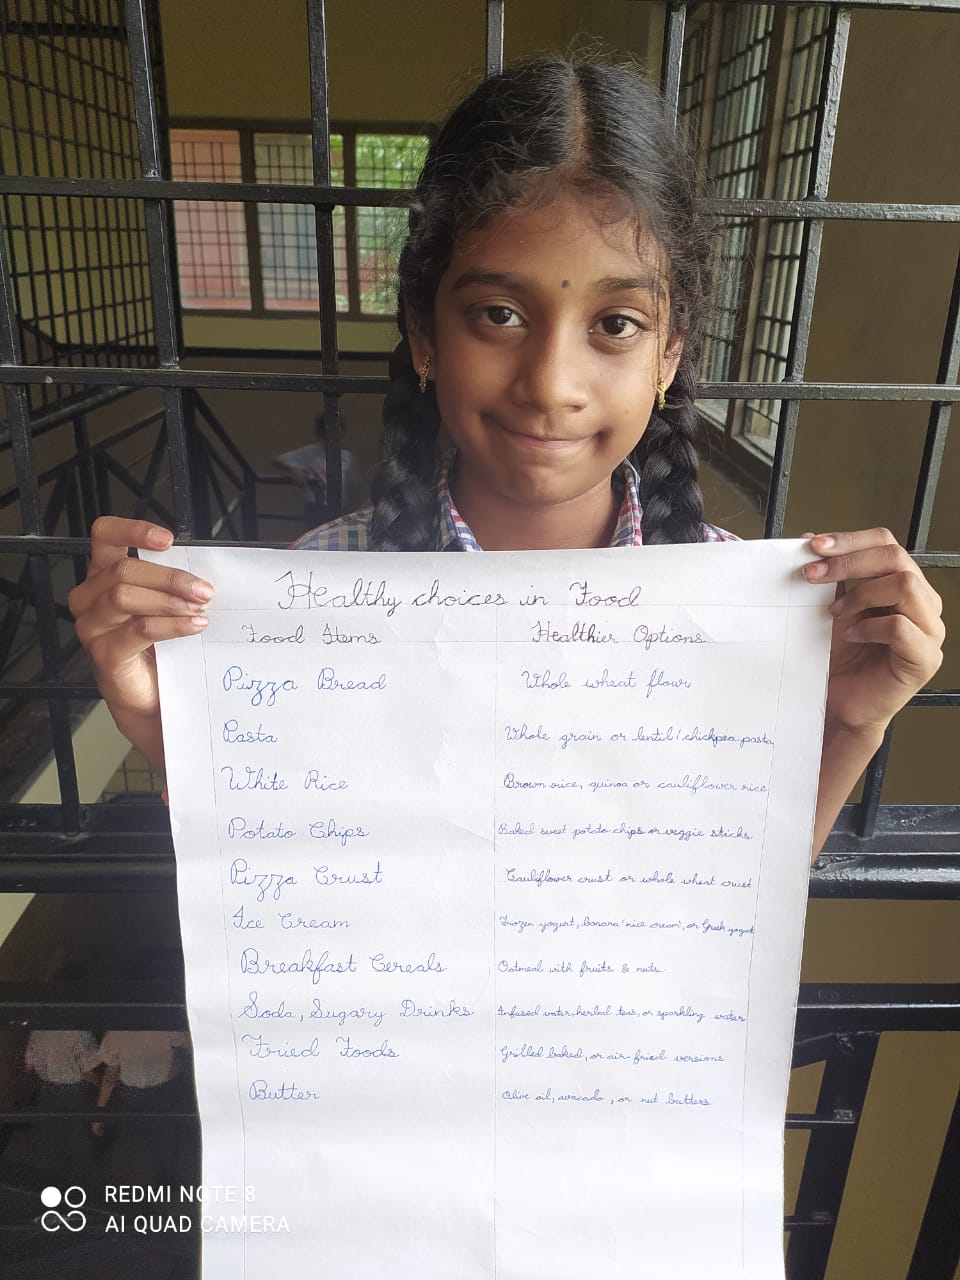 Healthy choices in Food
Food Items Healthier Options
Pizza Bread Whole wheat flour
Pasta Whole grain or lentil/chickpea pasta
White Rice Brown rice, quinoa or cauliflower rice
Potato Chips Baked sweet potato chips or veggie sticks
Pizza Crust Cauliflower crust or whole wheat crust
Ice Cream Frozen yogurt, banana 'nice cream', or Greek yogurt
Breakfast Cereals Oatmeal with fruits & nuts
Soda, Sugary Drinks Infused water, herbal teas, or sparkling water
Fried Foods Grilled baked, or air-fried versions
Butter Olive oil, avocado, or nut butters
REDMI NOTE 8
AI QUAD CAMERA